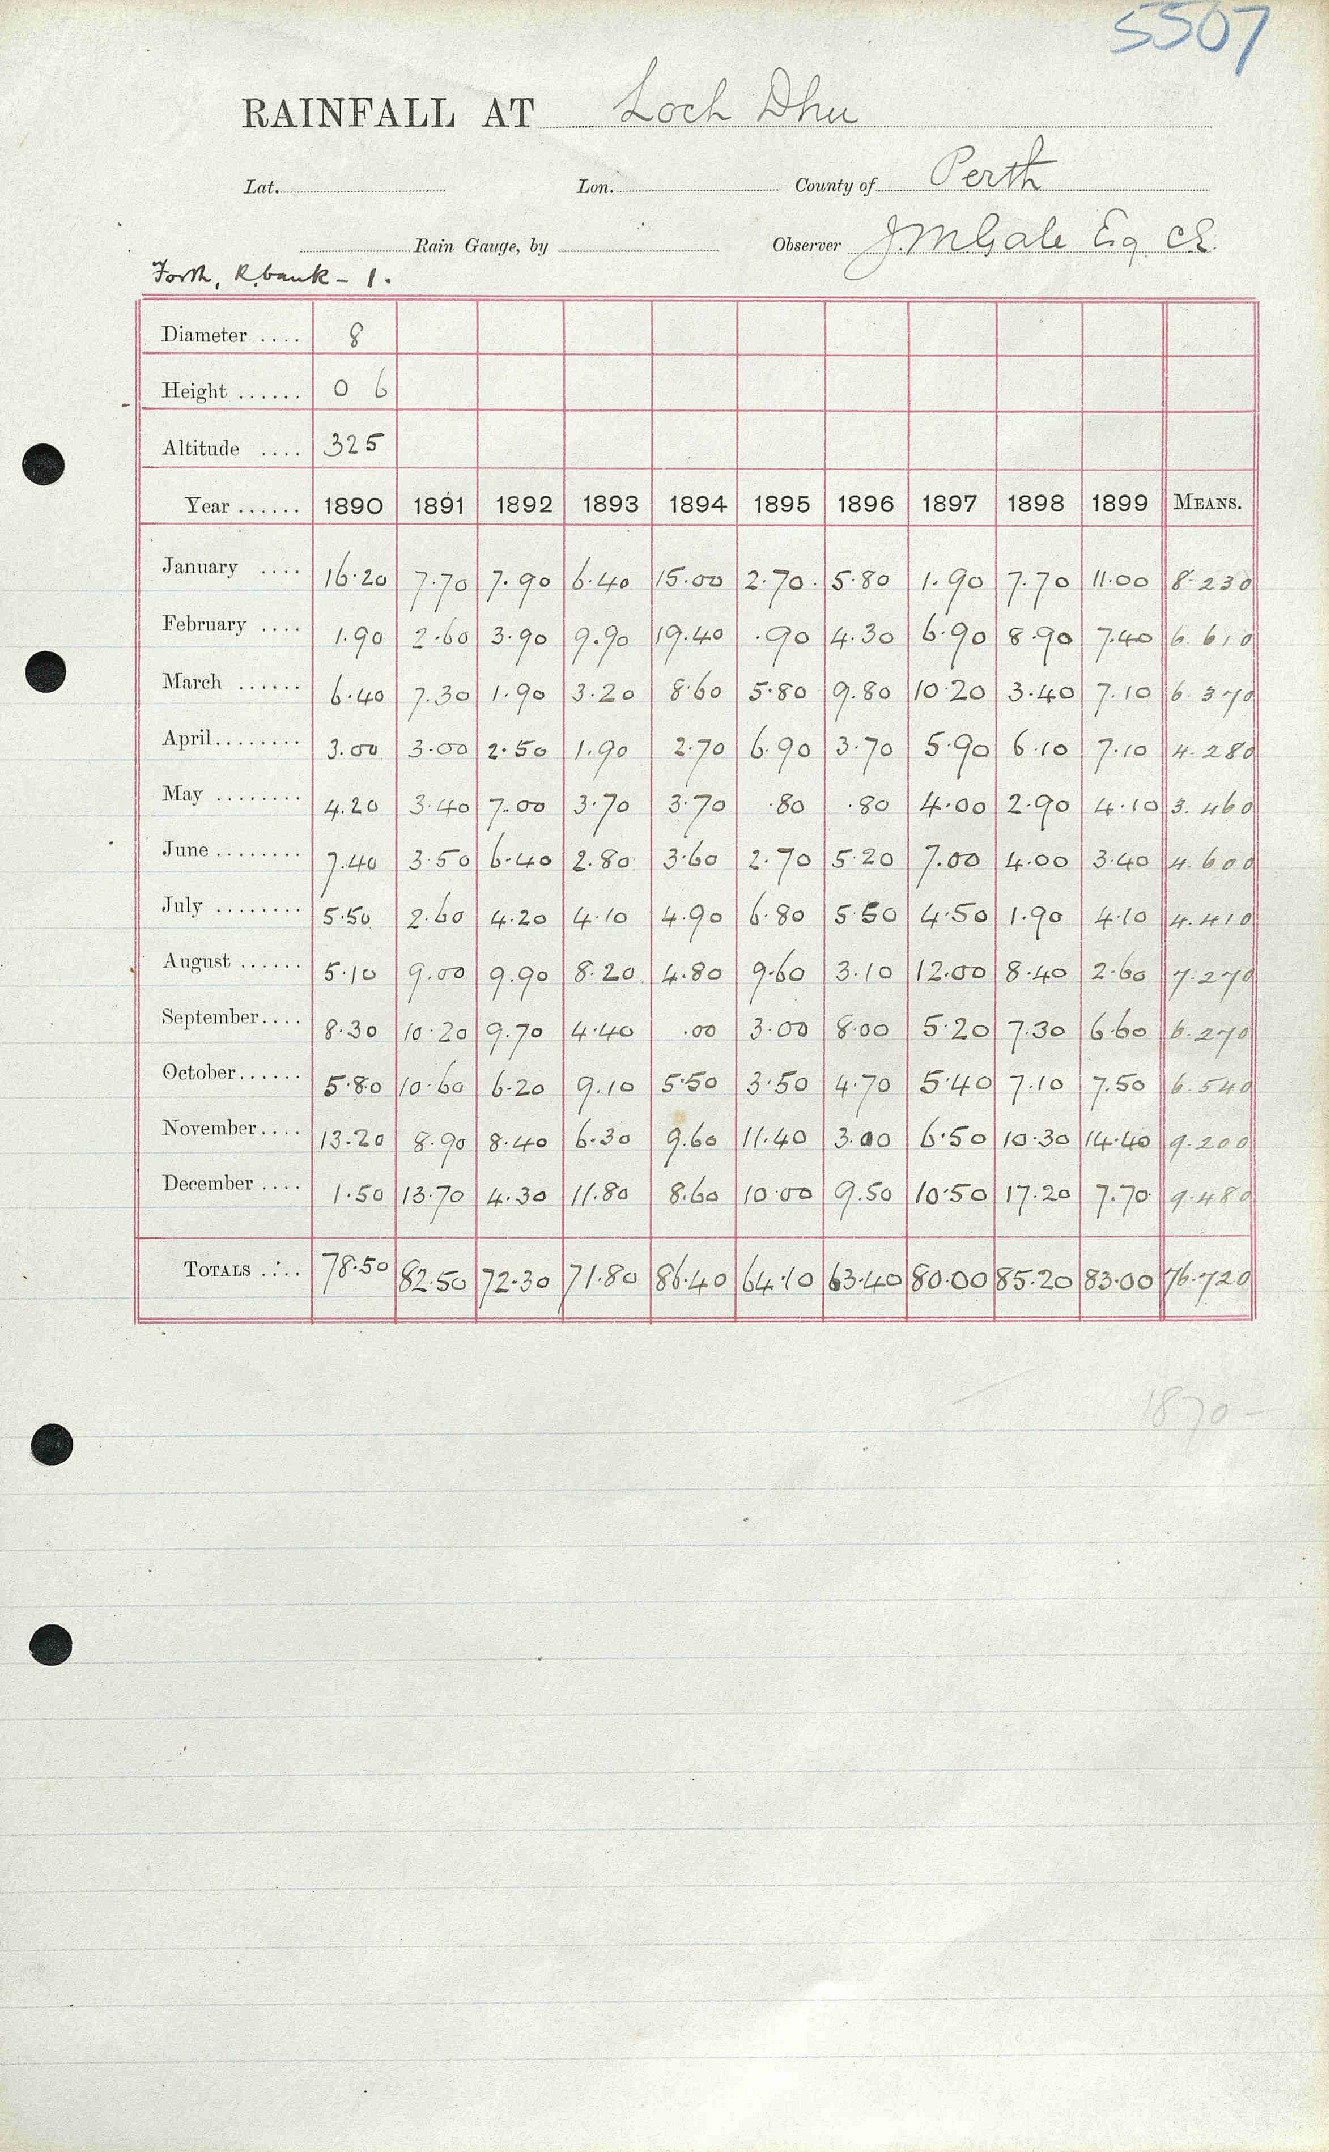 5507
RAINFALL AT Loch Dhu
Lat. Lon. County of Perth
Rain Gauge, by Observer J. M. Gale Esq CE.
Forth, R. bank - 1.
Diameter .... 8
Height ...... 0 6
Altitude .... 325
Year ...... 1890 1891 1892 1893 1894 1895 1896 1897 1898 1899 MEANS.
January .... 16.20 7.70 7.90 6.40 15.00 2.70 5.80 1.90 7.70 11.00 8.230
February .... 1.90 2.60 3.90 9.90 19.40 .90 4.30 6.90 8.90 7.40 6.610
March ...... 6.40 7.30 1.90 3.20 8.60 5.80 9.80 10.20 3.40 7.10 6.370
April........ 3.00 3.00 2.50 1.90 2.70 6.90 3.70 5.90 6.10 7.10 4.280
May ........ 4.20 3.40 7.00 3.70 3.70 .80 .80 4.00 2.90 4.10 3.460
June ........ 7.40 3.50 6.40 2.80 3.60 2.70 5.20 7.00 4.00 3.40 4.600
July ........ 5.50 2.60 4.20 4.10 4.90 6.80 5.50 4.50 1.90 4.10 4.410
August ...... 5.10 9.00 9.90 8.20 4.80 9.60 3.10 12.00 8.40 2.60 7.270
September.... 8.30 10.20 9.70 4.40 .00 3.00 8.00 5.20 7.30 6.60 6.270
October...... 5.80 10.60 6.20 9.10 5.50 3.50 4.70 5.40 7.10 7.50 6.540
November.... 13.20 8.90 8.40 6.30 9.60 11.40 3.00 6.50 10.30 14.40 9.200
December .... 1.50 13.70 4.30 11.80 8.60 10.00 9.50 10.50 17.20 7.70 9.480
TOTALS .... 78.50 82.50 72.30 71.80 86.40 64.10 63.40 80.00 85.20 83.00 76.720
1870 -